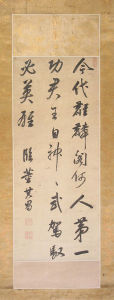 今代麒麟閣何人第一
功君王自神武駕馭
必英雄 臨董其昌